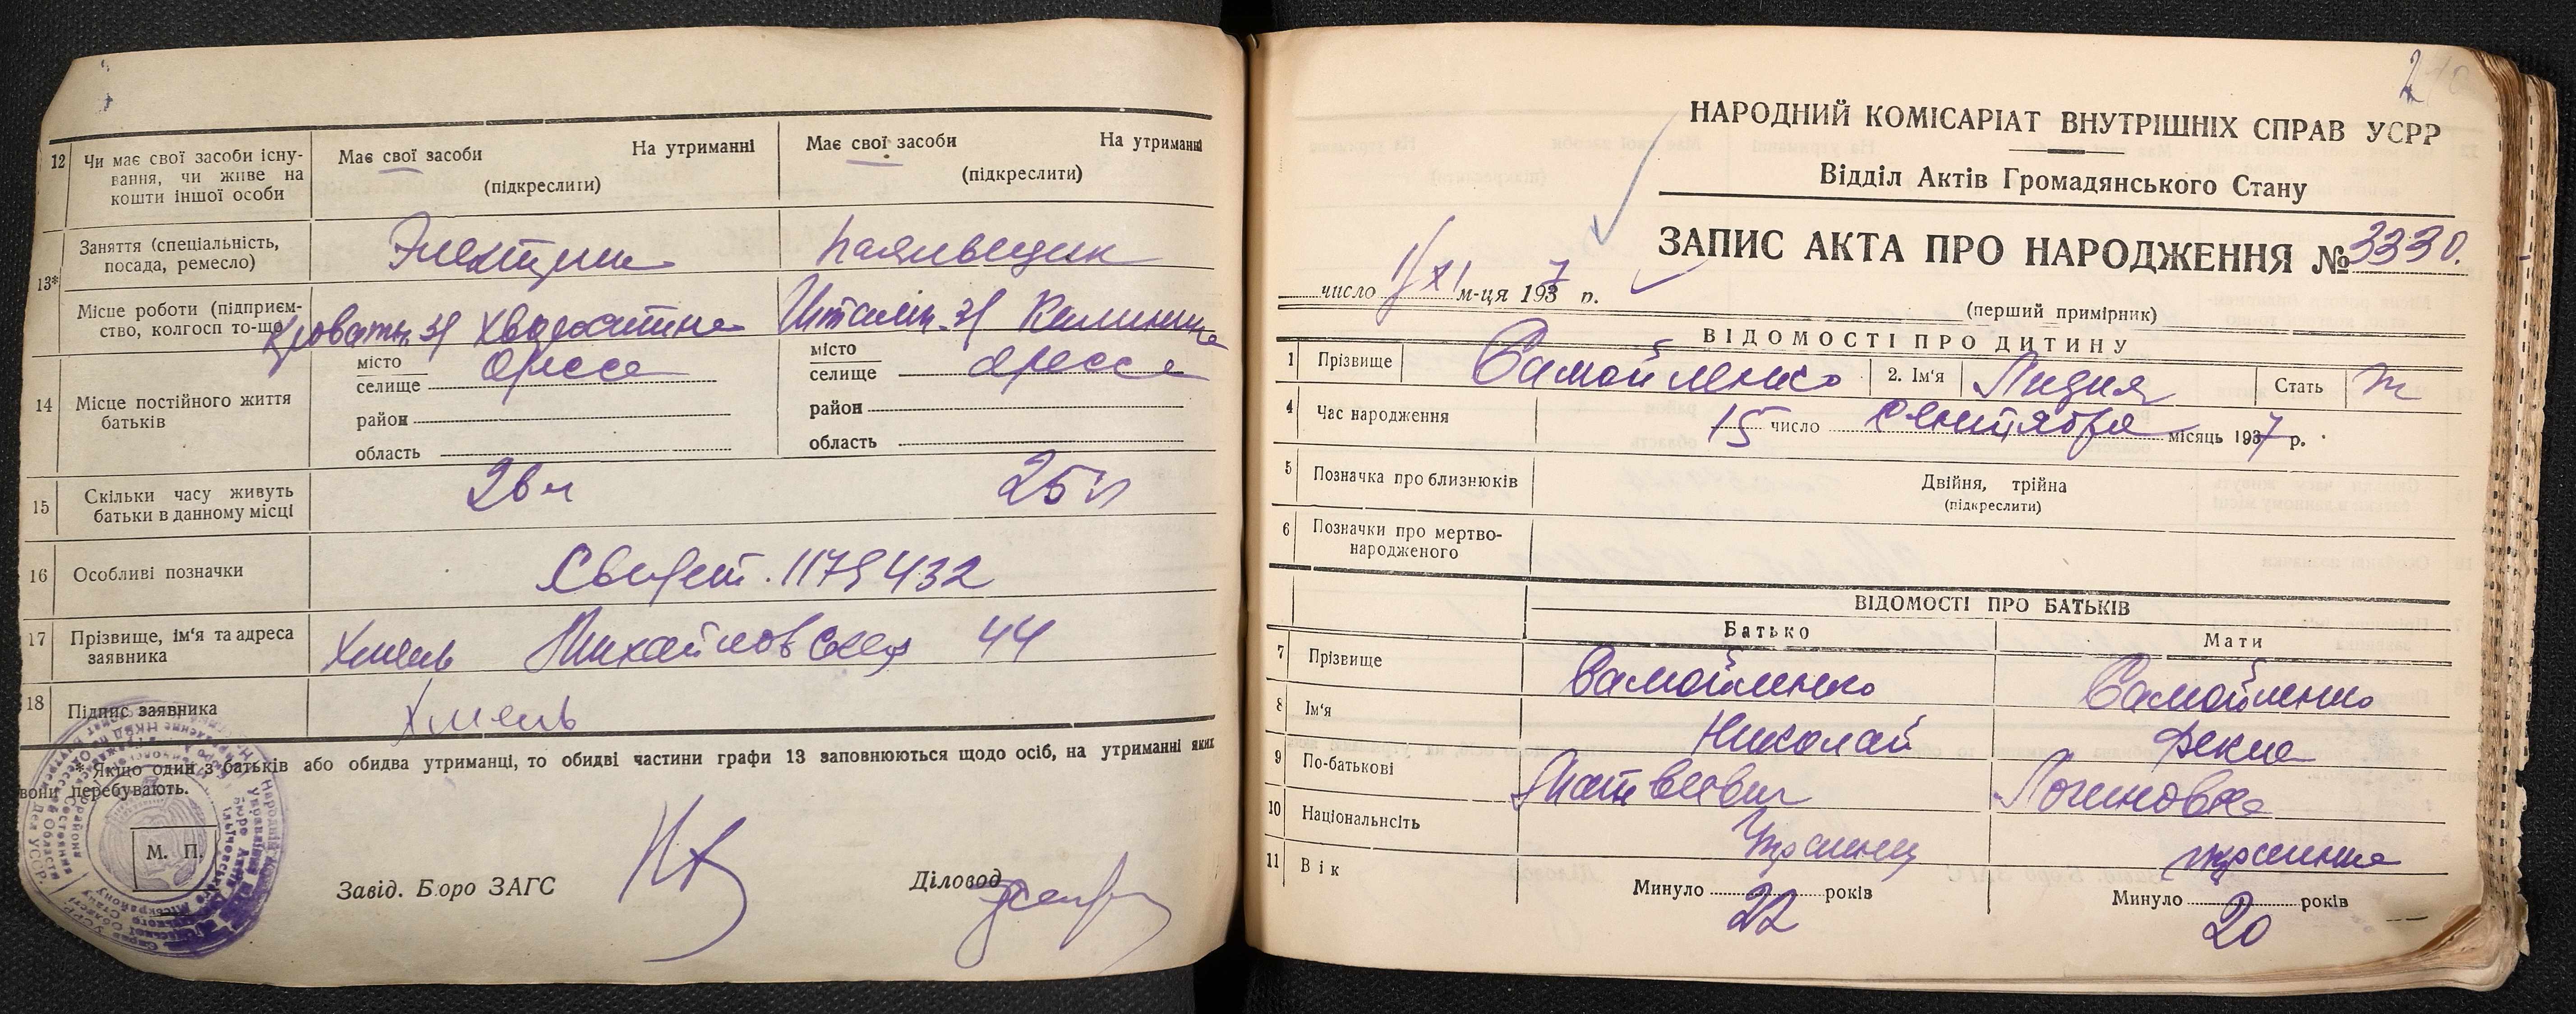 12 Чи має свої засоби існу-
вання, чи живе на
кошти іншої особи
Має свої засоби На утриманні
(підкреслити)
Має свої засоби На утриманні
(підкреслити)
13*
Заняття (спеціальність,
посада, ремесло)
Місце роботи (підприєм-
ство, колгосп то-що)
Калинина
14 Місце постійного життя
батьків
місто
селище Одесса
район
область
місто
селище Одесса
район
область
15 Скільки часу живуть
батьки в данному місці
25 л
16 Особливі позначки
Свидет. 1179432
17 Прізвище, ім'я та адреса
заявника
Хмель Михайловская 44
18 Підпис заявника
Хмель
* Якщо один з батьків або обидва утриманці, то обидві частини графи 13 заповнюються щодо осіб, на утриманні яких
вони перебувають.
М. П.
Завід. Бюро ЗАГС
Діловод
2
НАРОДНИЙ КОМІСАРІАТ ВНУТРІШНІХ СПРАВ УСРР
Відділ Актів Громадянського Стану
ЗАПИС АКТА ПРО НАРОДЖЕННЯ № 3330.
число XI м-ця 1937 р.
(перший примірник)
ВІДОМОСТІ ПРО ДИТИНУ
1 Прізвище Самойленко 2. Ім'я Лидия Стать ж
4 Час народження 15 число сентября місяць 1937 р.
5 Позначка про близнюків Двійня, трійна
(підкреслити)
6 Позначки про мертво-
народженого
ВІДОМОСТІ ПРО БАТЬКІВ
Батько Мати
7 Прізвище Самойленко Самойленко
8 Ім'я Николай Фекла
9 По-батькові Матвеевич Логиновна
10 Національність Украинец украинка
11 Вік Минуло 22 років Минуло 20 років